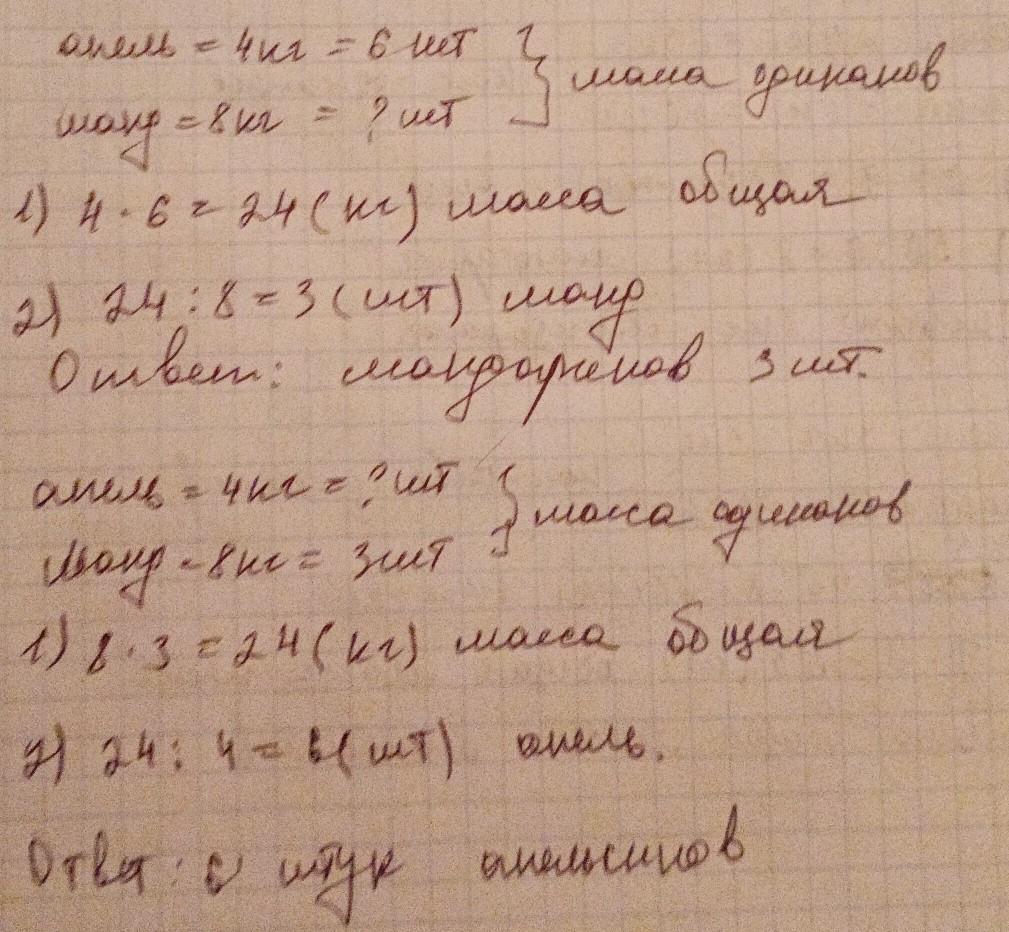 апель = 4кг = 6 шт } маса одинаков
манд = 8кг = ? шт
1) 4 · 6 = 24 (кг) масса общая
2) 24 : 8 = 3 (шт) манд
Ответ: мандаринов 3 шт.
апель = 4кг = ? шт } масса одинаков
Манд - 8кг = 3 шт
1) 8 · 3 = 24 (кг) масса общая
2) 24 : 4 = 6 (шт) апель.
Ответ: 6 штук апельсинов